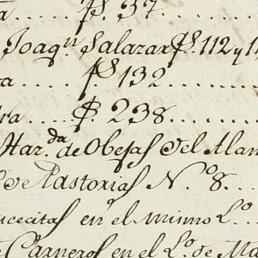 a.... f.s 37....
Joaqn Salazar f.s 112 y 1
ra.... f.s 132....
tra.... f.s 238....
Haz.da de Obejas del Alam
de Pastorias N.o 8....
ucecitas en el mismo L.o...
e Carneros en el L.o de Ma